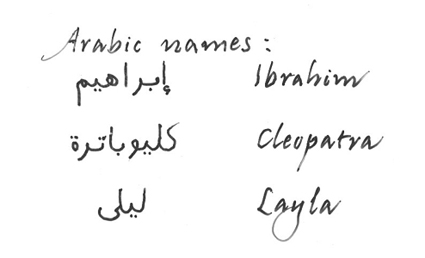 Arabic names:
إبراهيم Ibrahim
كليوباترة Cleopatra
ليلى Layla